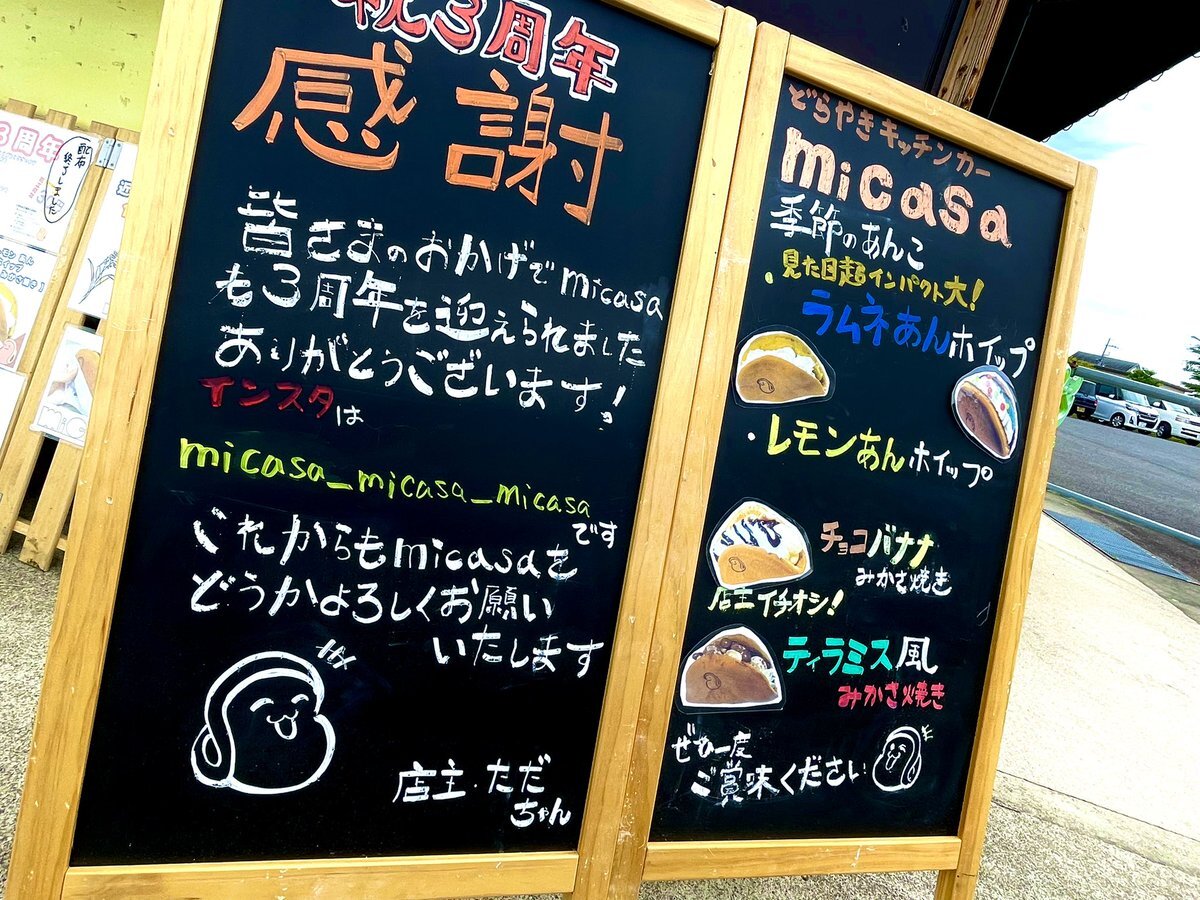 祝3周年
感謝
皆さまのおかげでmicasa
も3周年を迎えられました
ありがとうございます!
インスタは
micasa_micasa_micasa
です
これからもmicasaを
どうかよろしくお願い
いたします
店主・ただ
ちゃん
どらやきキッチンカー
micasa
季節のあんこ
・見た目超インパクト大!
ラムネあんホイップ
・レモンあんホイップ
チョコバナナ
みかさ焼き
店主イチオシ!
ティラミス風
みかさ焼き
ぜひ一度
ご賞味ください
3周年
配布
終了しました